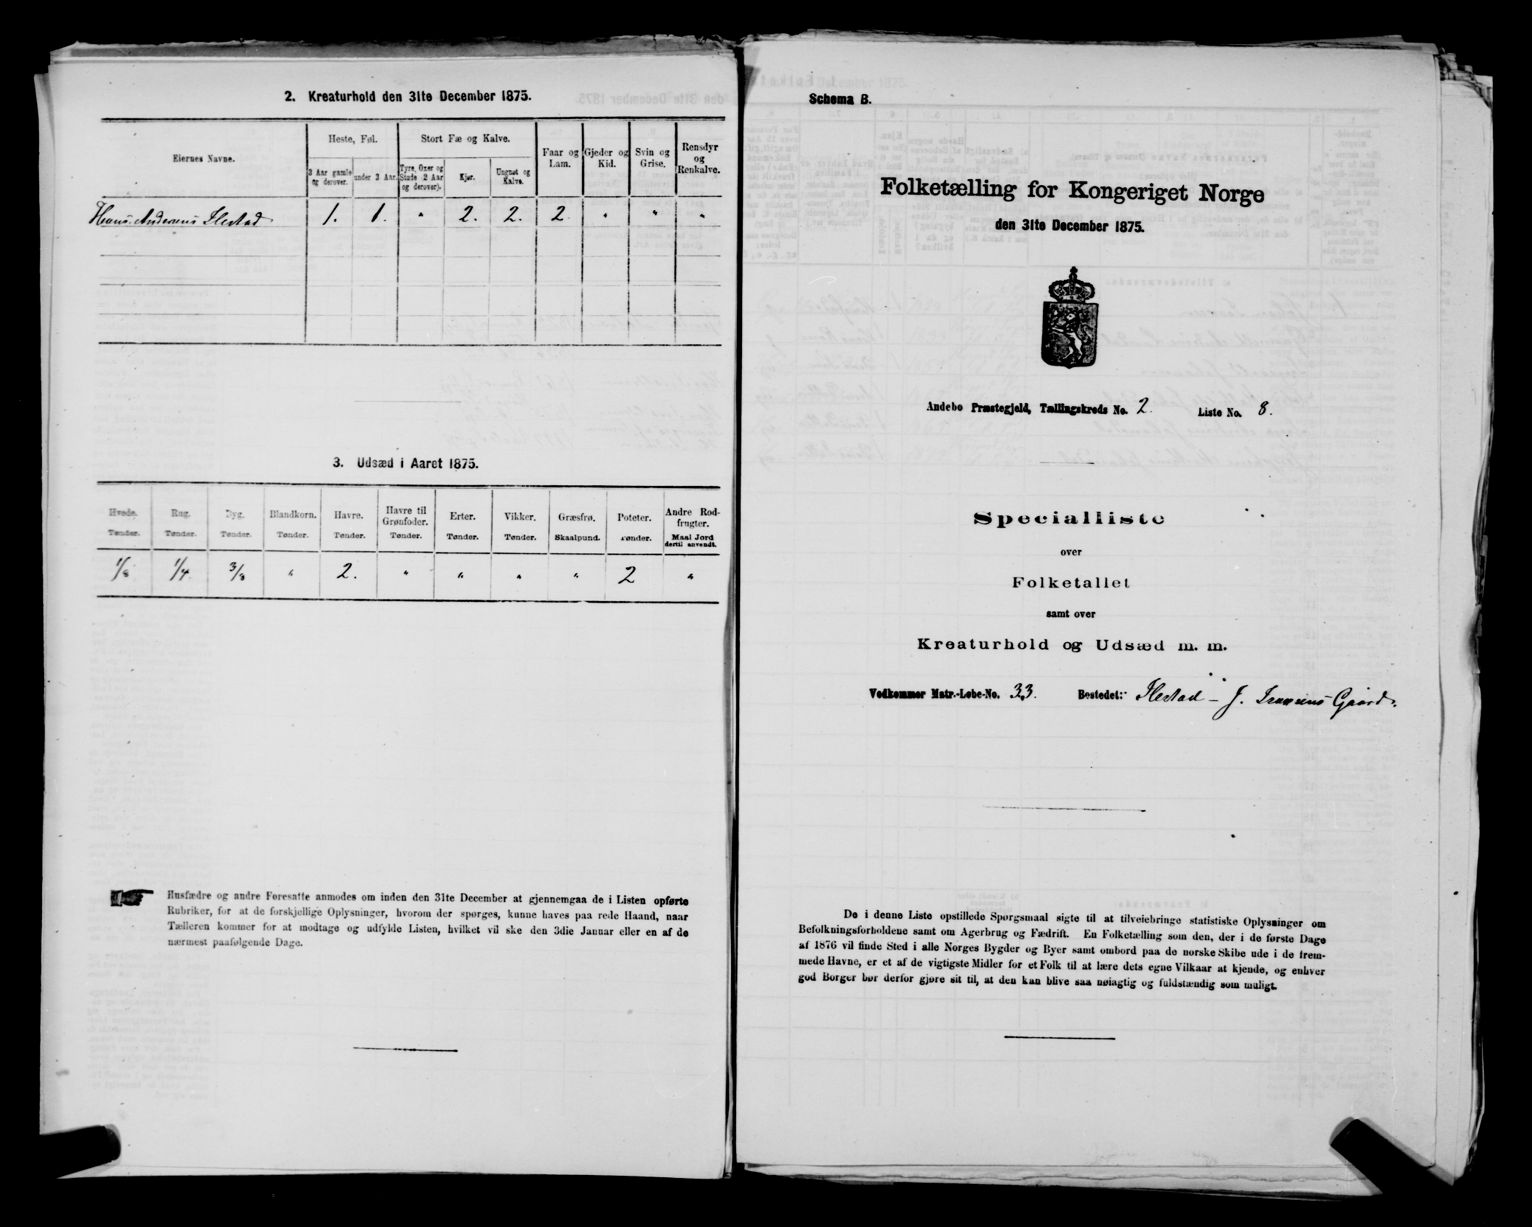 2. Kreaturhold den 31te December 1875.
Eiernes Navne.
Heste, Føl.
3 Aar gamle og derover.
under 3 Aar.
Stort Fæ og Kalve.
Tyre, Oxer og Stude 2 Aar og derover).
Kjør.
Ungnøt og Kalve.
Faar og Lam.
Gjeder og Kid.
Svin og Grise.
Rensdyr og Renkalve.
Hans Andersens Ilestad 1. 1. " 2. 2. 2 " " "
3. Udsæd i Aaret 1875.
Hvede. Rug. Byg. Blandkorn. Havre. Havre til Grønfoder. Erter. Vikker. Græsfrø. Poteter. Andre Rodfrugter.
Tønder. Tønder. Tønder. Tønder. Tønder. Tønder. Tønder. Tønder. Skaalpund. Tønder. Maal Jord dertil anvendt.
1/8 1/4 3/8 " 2. " " " " 2 "
Husfædre og andre Foresatte anmodes om inden den 31te December at gjennemgaa de i Listen opførte
Rubriker, for at de forskjellige Oplysninger, hvorom der spørges, kunne haves paa rede Haand, naar
Tælleren kommer for at modtage og udfylde Listen, hvilket vil ske den 3die Januar eller en af de
nærmest paafølgende Dage.
Schema B.
Folketælling for Kongeriget Norge
den 31te December 1875.
Andebo Præstegjeld, Tællingskreds No. 2. Liste No. 8.
Specialliste
over
Folketallet
samt over
Kreaturhold og Udsæd m. m.
Vedkommer Matr.-Løbe-No. 33. Bostedet: Ilestad - J. Gaard.
De i denne Liste opstillede Spørgsmaal sigte til at tilveiebringe statistiske Oplysninger om
Befolkningsforholdene samt om Agerbrug og Fædrift. En Folketælling som den, der i de første Dage
af 1876 vil finde Sted i alle Norges Bygder og Byer samt ombord paa de norske Skibe ude i de frem-
mede Havne, er et af de vigtigste Midler for et Folk til at lære dets egne Vilkaar at kjende, og enhver
god Borger bør derfor gjøre sit til, at den kan blive saa nøiagtig og fuldstændig som muligt.